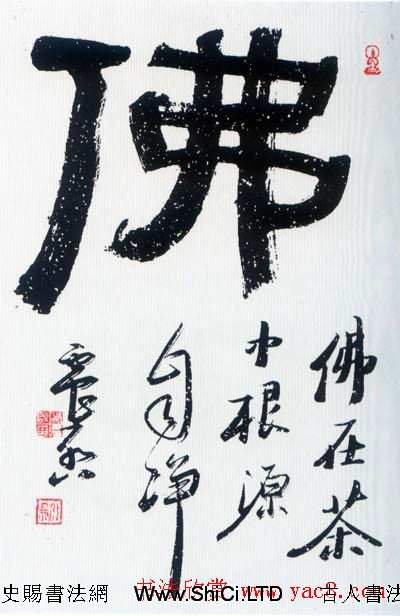 佛
佛在茶
中根源
自净
史賜書法網 www.ShiCi.LTD 古人書法
书法欣赏 www.yac8.com